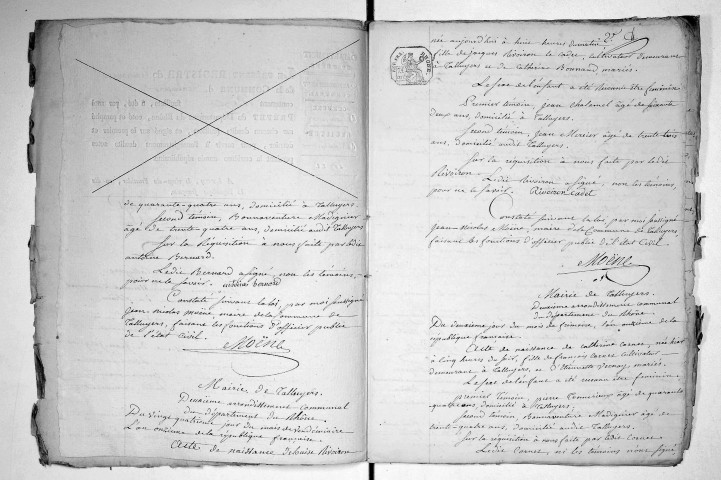 de quarante-quatre ans, domicilié à Talluyers.
Second témoin, Bonnaventure Madignier
âgé de trente-quatre ans, domicilié audit Talluyers
Sur la Réquisition à nous faite par ledit
antoine Bernard.
Ledit Bernard a signé, non les témoins,
pour ne le savoir.
Constaté suivant la loi, par moi soussigné
jean nicolas moine, maire de la Commune de
Talluyers, faisant les fonctions d'officier public
de l'état civil.
Moine
Mairie de Talluyers.
Deuxième arrondissement communal
du département du Rhône.
Du vingt quatrième jour du mois de vendémiaire
L'an onzième de la république française.
Acte de naissance de Rivoiron
née aujourd'hui à huit heures du matin
fille de jacques Rivoiron le cadet, cultivateur demeurant
à Talluyers et de Catherine Bonnand mariés.
Le sexe de l'enfant a été reconnu être féminin
Premier témoin, jean Chalamel âgé de soixante
deux ans, domicilié à Talluyers.
Second témoin, jean Mercier âgé de trente trois
ans, domicilié audit Talluyers.
Sur la réquisition à nous faite par ledit
Rivoiron.
Ledit Rivoiron a signé, non les témoins,
pour ne le savoir. Rivoiron Cadet
Constaté suivant la loi, par moi soussigné
jean-nicolas Moine, maire de la Commune de Talluyers,
faisant les fonctions d'officier public de l'état Civil.
Moine
Mairie de Talluyers.
Deuxième arrondissement communal
du département du Rhône.
Du deuxième jour du mois de frimaire, l'an onzième de la
république française
Acte de naissance de Catherine Carnet, née hier
à cinq heures du soir, fille de françois Carnet cultivateur
demeurant à Talluyers, et d'Etiennette mariés.
Le sexe de l'enfant a été reconnu être féminin.
premier témoin, pierre âgé de quarante
quatre ans, domicilié à Talluyers.
Second témoin, Bonnaventure Madignier âgé de
trente-quatre ans, domicilié audit Talluyers.
Sur la réquisition à nous faite par ledit Carnet
Ledit Carnet, ni les témoins n'ont signé,